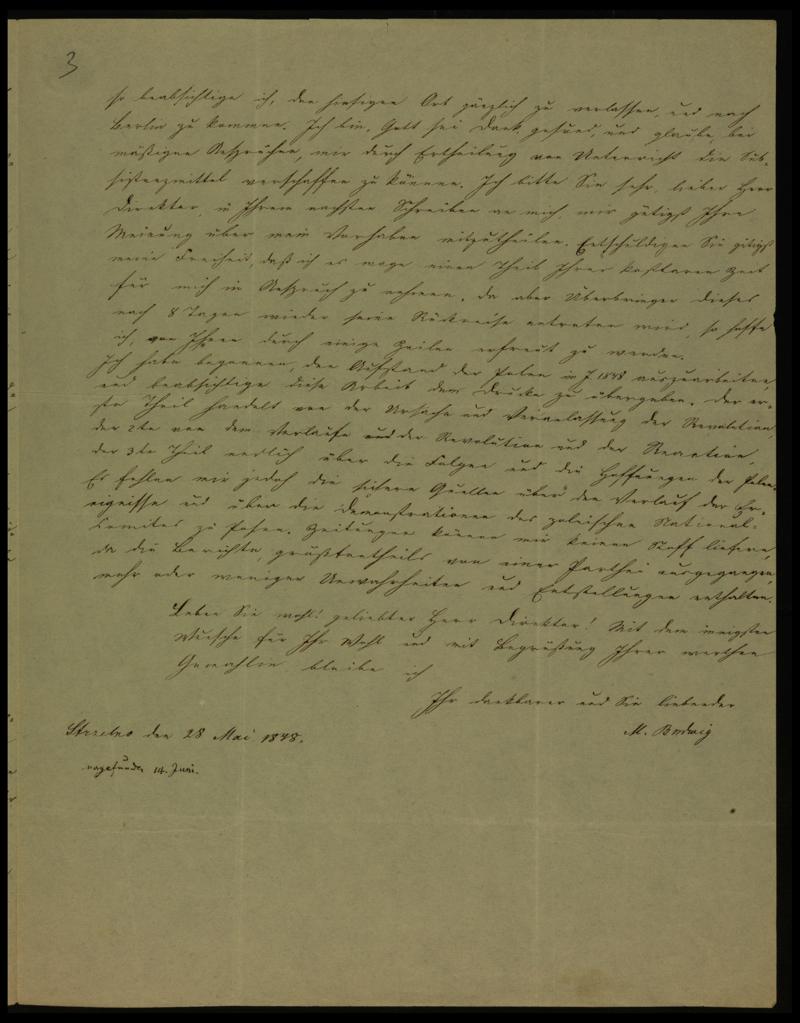 3
so beabsichtige ich, den hiesigen Ort gänzlich zu verlassen, und nach
Berlin zu kommen. Ich bin, Gott sei Dank gesund, und glaube, bei
mäßigen Ansprüchen, mir durch Ertheilung von Unterricht die Sub-
sistenzmittel verschaffen zu können. Ich bitte Sie sehr, lieber Herr
Direktor, in Ihrem nächsten Schreiben an mich, mir gütigst Ihre
Meinung über mein Vorhaben mitzutheilen. Entschuldigen Sie gütigst
meine Freiheit, daß ich es wage einen Theil Ihrer kostbaren Zeit
für mich in Anspruch zu nehmen. Da aber Überbringer dieses
nach 8 Tagen wieder seine Rückreise antreten wird, so hoffe
ich, von Ihnen durch einige Zeilen erfreut zu werden.
Ich habe begonnen, den Aufstand der Polen im J. 1848 auszuarbeiten,
und beabsichtige diese Arbeit dem Drucke zu übergeben. Der er-
ste Theil handelt von der Ursache und Veranlassung der Revolution,
der 2te von dem Verlaufe und der Revolution und der Reaction,
der 3te Theil endlich über die Folgen und die Hoffnungen der Polen.
Es fehlen mir jedoch die sichern Quellen über den Verlauf der Er-
eignisse und über die Demonstrationen des polnischen National-
Comites zu Posen. Zeitungen können mir keinen Stoff liefern,
da die Berichte, größtentheils von einer Parthei ausgegangen,
mehr oder weniger Unwahrheiten und Entstellungen enthalten.
Leben Sie wohl! geliebter Herr Direktor! Mit dem innigsten
Wunsche für Ihr Wohl und mit Begrüßung Ihrer werthen
Gemahlin bleibe ich
Ihr dankbarer und Sie liebender
M. Budwig
Strzelno den 28 Mai 1848.
14. Juni.